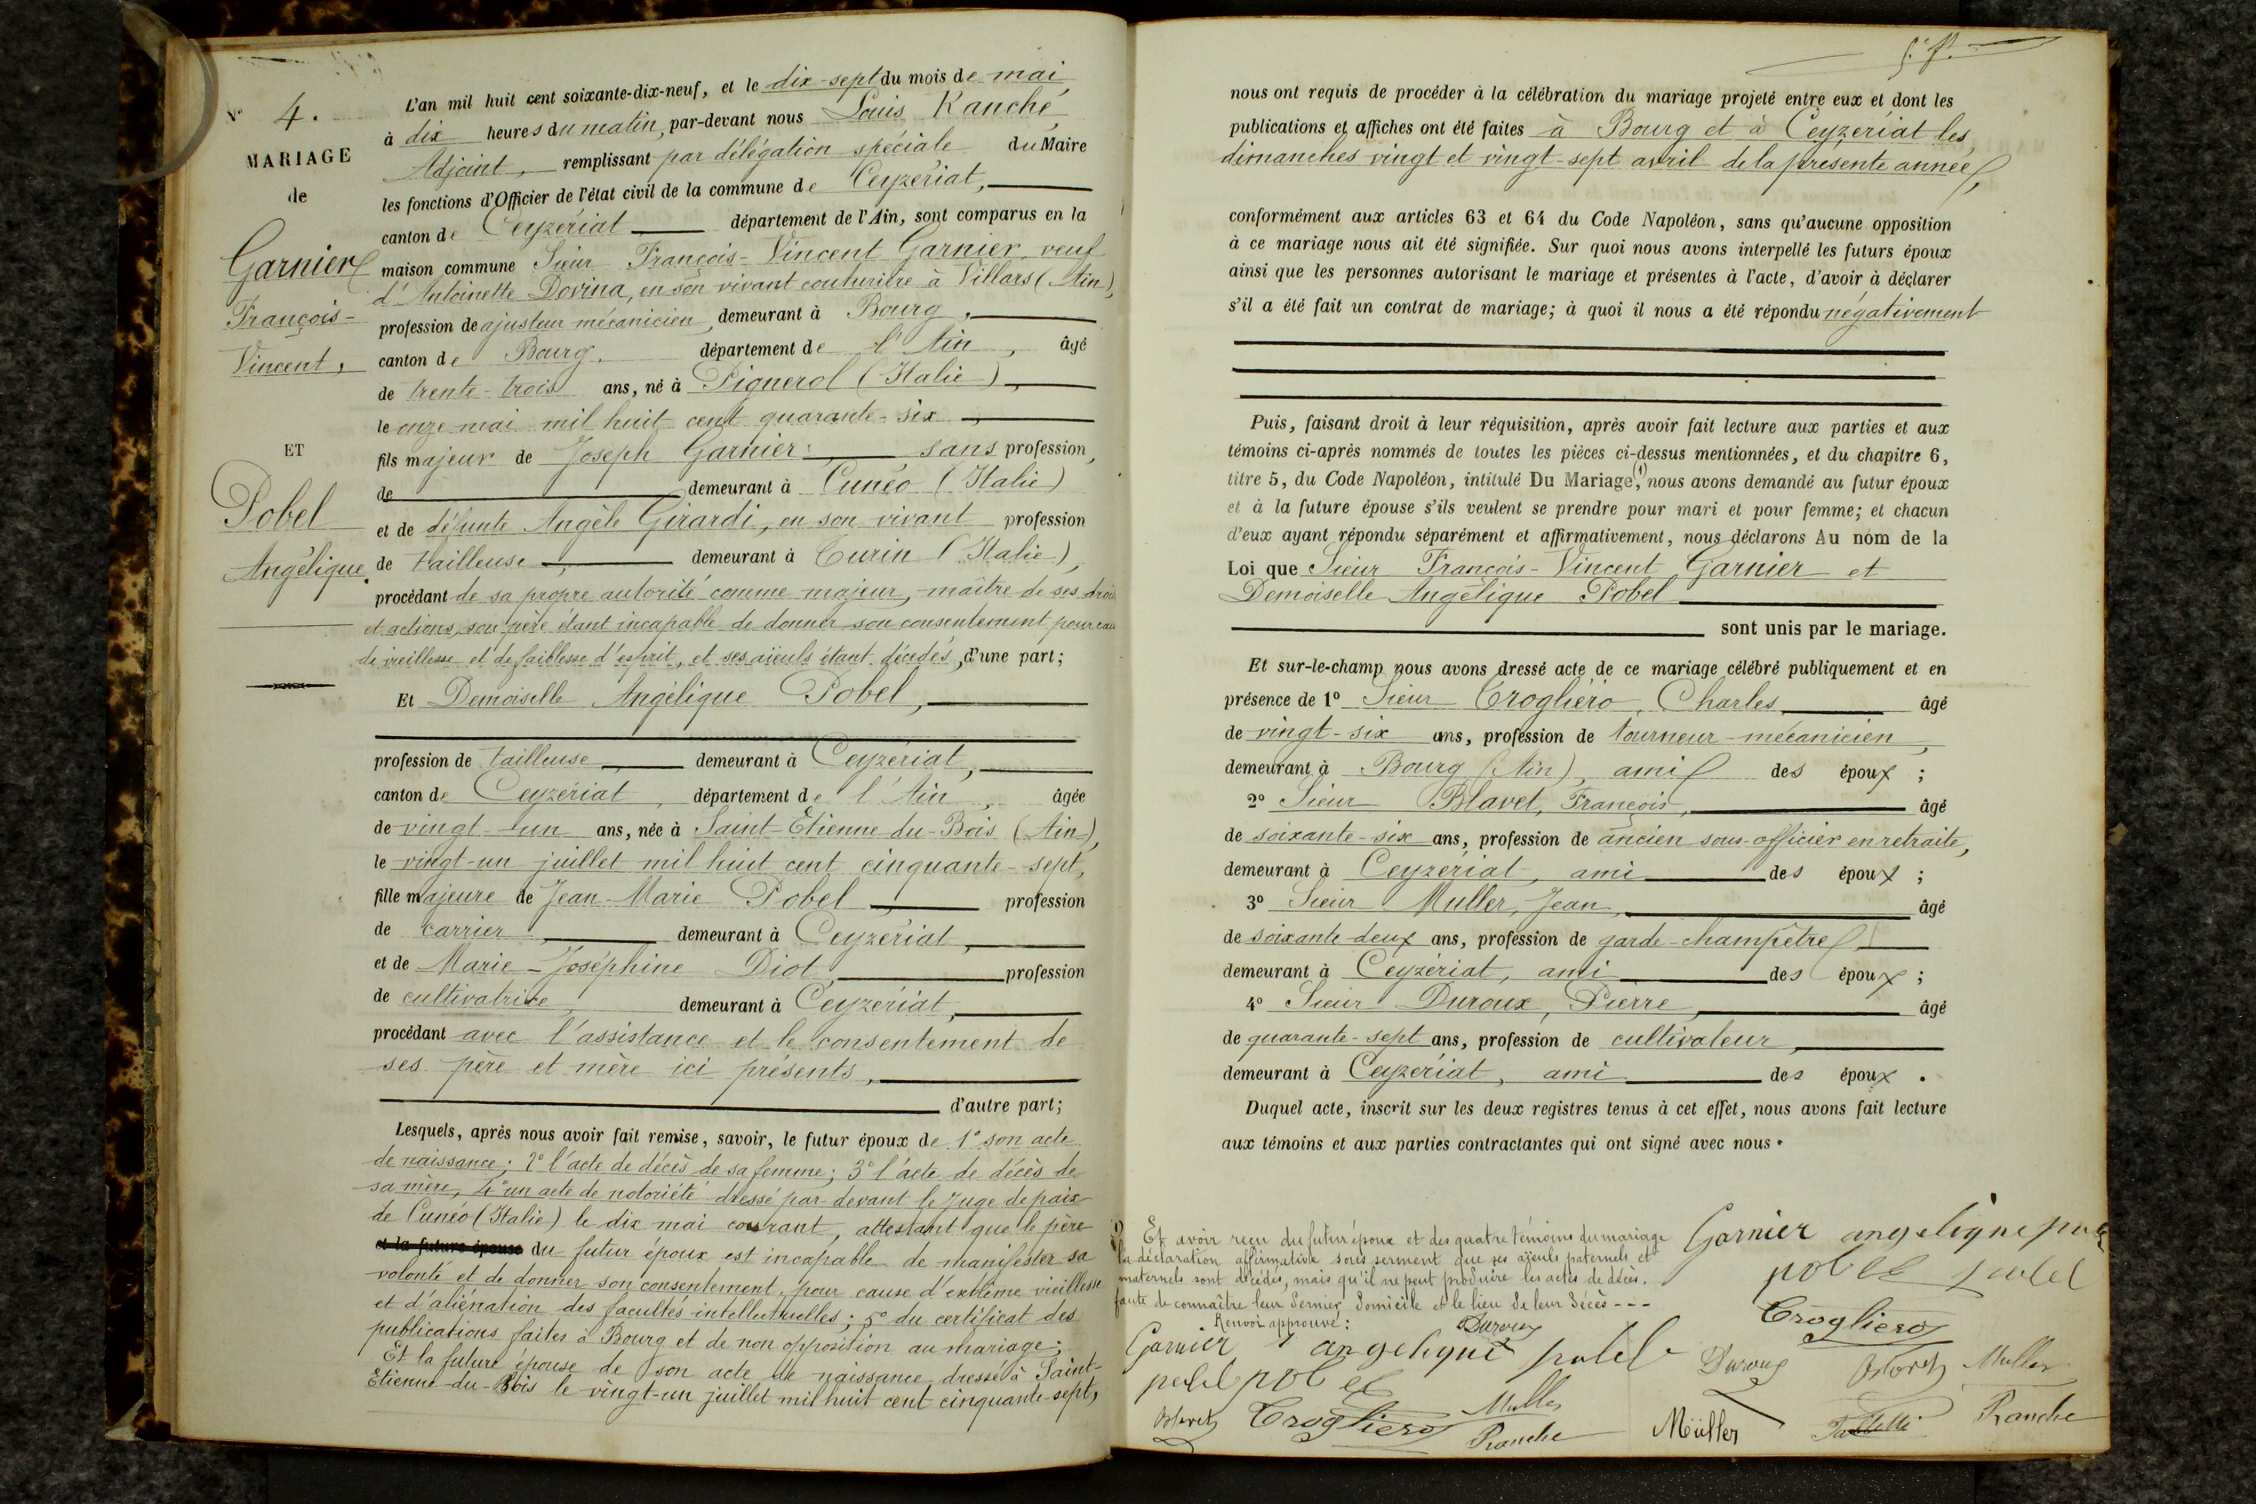 N° 4.
MARIAGE
de
Garnier
François-
Vincent,
ET
Pobel
Angélique.
L'an mil huit cent soixante-dix-neuf, et le dix-sept du mois de mai,
à dix heures du matin, par-devant nous Louis Ranché,
Adjoint, remplissant par délégation spéciale du Maire
les fonctions d'Officier de l'état civil de la commune de Ceyzériat,
canton de Ceyzériat département de l'Ain, sont comparus en la
maison commune Sieur François-Vincent Garnier, veuf
d'Antoinette Dovina, en son vivant couturière à Villars (Ain),
profession de ajusteur mécanicien, demeurant à Bourg,
canton de Bourg. département de l'Ain, âgé
de trente-trois ans, né à Pignerol (Italie),
le onze mai mil huit cent quarante-six,
fils majeur de Joseph Garnier, sans profession,
de demeurant à Cunéo (Italie)
et de défunte Angèle Girardi, en son vivant profession
de tailleuse, demeurant à Turin (Italie),
procédant de sa propre autorité comme majeur, maître de ses droits
et actions, son père étant incapable de donner son consentement pour cause
de vieillesse et de faiblesse d'esprit, et ses aïeuls étant décédés, d'une part;
Et Demoiselle Angélique Pobel,
profession de tailleuse, demeurant à Ceyzériat,
canton de Ceyzériat, département de l'Ain, âgée
de vingt-un ans, née à Saint-Etienne-du-Bois (Ain),
le vingt-un juillet mil huit cent cinquante-sept,
fille majeure de Jean-Marie Pobel, profession
de carrier, demeurant à Ceyzériat,
et de Marie-Joséphine Diot, profession
de cultivatrice, demeurant à Ceyzériat,
procédant avec l'assistance et le consentement de
ses père et mère ici présents,
d'autre part;
Lesquels, après nous avoir fait remise, savoir, le futur époux de 1° son acte
de naissance; 2° l'acte de décès de sa femme; 3° l'acte de décès de
sa mère, 4° un acte de notoriété dressé par devant le Juge de paix
de Cunéo (Italie) le dix mai courant, attestant que le père
et la future épouse du futur époux est incapable de manifester sa
volonté et de donner son consentement, pour cause d'extrême vieillesse
et d'aliénation des facultés intellectuelles; 5° du certificat des
publications faites à Bourg et de non opposition au mariage;
Et la future épouse de son acte de naissance dressé à Saint-
Etienne-du-Bois le vingt-un juillet mil huit cent cinquante-sept,
nous ont requis de procéder à la célébration du mariage projeté entre eux et dont les
publications et affiches ont été faites à Bourg et à Ceyzériat les
dimanches vingt et vingt-sept avril de la présente année,
conformément aux articles 63 et 64 du Code Napoléon, sans qu'aucune opposition
à ce mariage nous ait été signifiée. Sur quoi nous avons interpellé les futurs époux
ainsi que les personnes autorisant le mariage et présentes à l'acte, d'avoir à déclarer
s'il a été fait un contrat de mariage; à quoi il nous a été répondu négativement
Puis, faisant droit à leur réquisition, après avoir fait lecture aux parties et aux
témoins ci-après nommés de toutes les pièces ci-dessus mentionnées, et du chapitre 6,
titre 5, du Code Napoléon, intitulé Du Mariage, (1) nous avons demandé au futur époux
et à la future épouse s'ils veulent se prendre pour mari et pour femme; et chacun
d'eux ayant répondu séparément et affirmativement, nous déclarons Au nom de la
Loi que Sieur François-Vincent Garnier et
Demoiselle Angélique Pobel
sont unis par le mariage.
Et sur-le-champ nous avons dressé acte de ce mariage célébré publiquement et en
présence de 1° Sieur Crogliéro, Charles, âgé
de vingt-six ans, profession de tourneur-mécanicien,
demeurant à Bourg (Ain), ami des époux;
2° Sieur Blavet, François, âgé
de soixante-six ans, profession de ancien sous-officier en retraite,
demeurant à Ceyzériat, ami des époux;
3° Sieur Muller, Jean, âgé
de soixante-deux ans, profession de garde-champêtre
demeurant à Ceyzériat, ami des époux;
4° Sieur Duroux, Pierre, âgé
de quarante-sept ans, profession de cultivateur,
demeurant à Ceyzériat, ami des époux.
Duquel acte, inscrit sur les deux registres tenus à cet effet, nous avons fait lecture
aux témoins et aux parties contractantes qui ont signé avec nous.
(1) Et avoir reçu du futur époux et des quatre témoins du mariage
la déclaration affirmative sous serment que ses aïeuls paternels et
maternels sont décédés, mais qu'il ne peut produire les actes de décès,
faute de connaître leur dernier domicile et le lieu de leur décès ---
Renvoi approuvé:
Duroux
Garnier angelique pobel
pobel pobel
Muller
Blavet Crogliero Ranche
Garnier angelique
pobel pobel
Crogliero
Duroux Blavet Muller
Müller Ranche